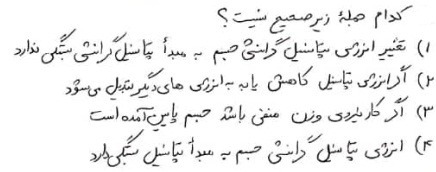 کدام جملهٔ زیر صحیح نیست؟
۱) تغییر انرژی پتاسیل گرانشی جسم به مبدأ پتاسیل گرانشی بستگی ندارد
۲) اگر انرژی پتاسیل کاهش یابد به انرژی های دیگر تبدیل می‌شود
۳) اگر کار نیروی وزن منفی باشد جسم پایین آمده است
۴) انرژی پتاسیل گرانشی جسم به مبدأ پتاسیل بستگی دارد